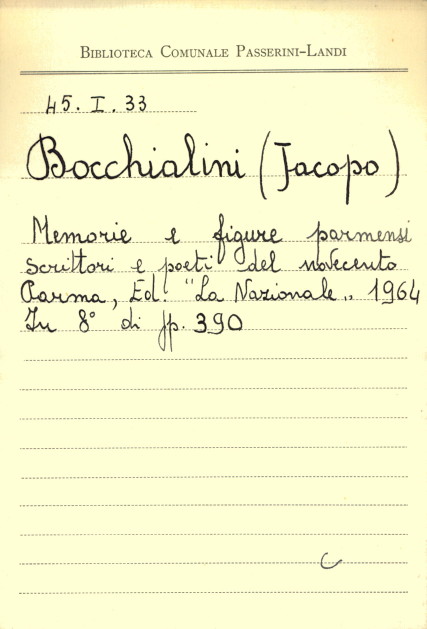 BIBLIOTECA COMUNALE PASSERINI-LANDI
45. I. 33
Bocchialini (Jacopo)
Memorie e figure parmensi
scrittori e poeti del novecento
Parma, Ed. "La Nazionale„ 1964
In 8° di pp. 390
C